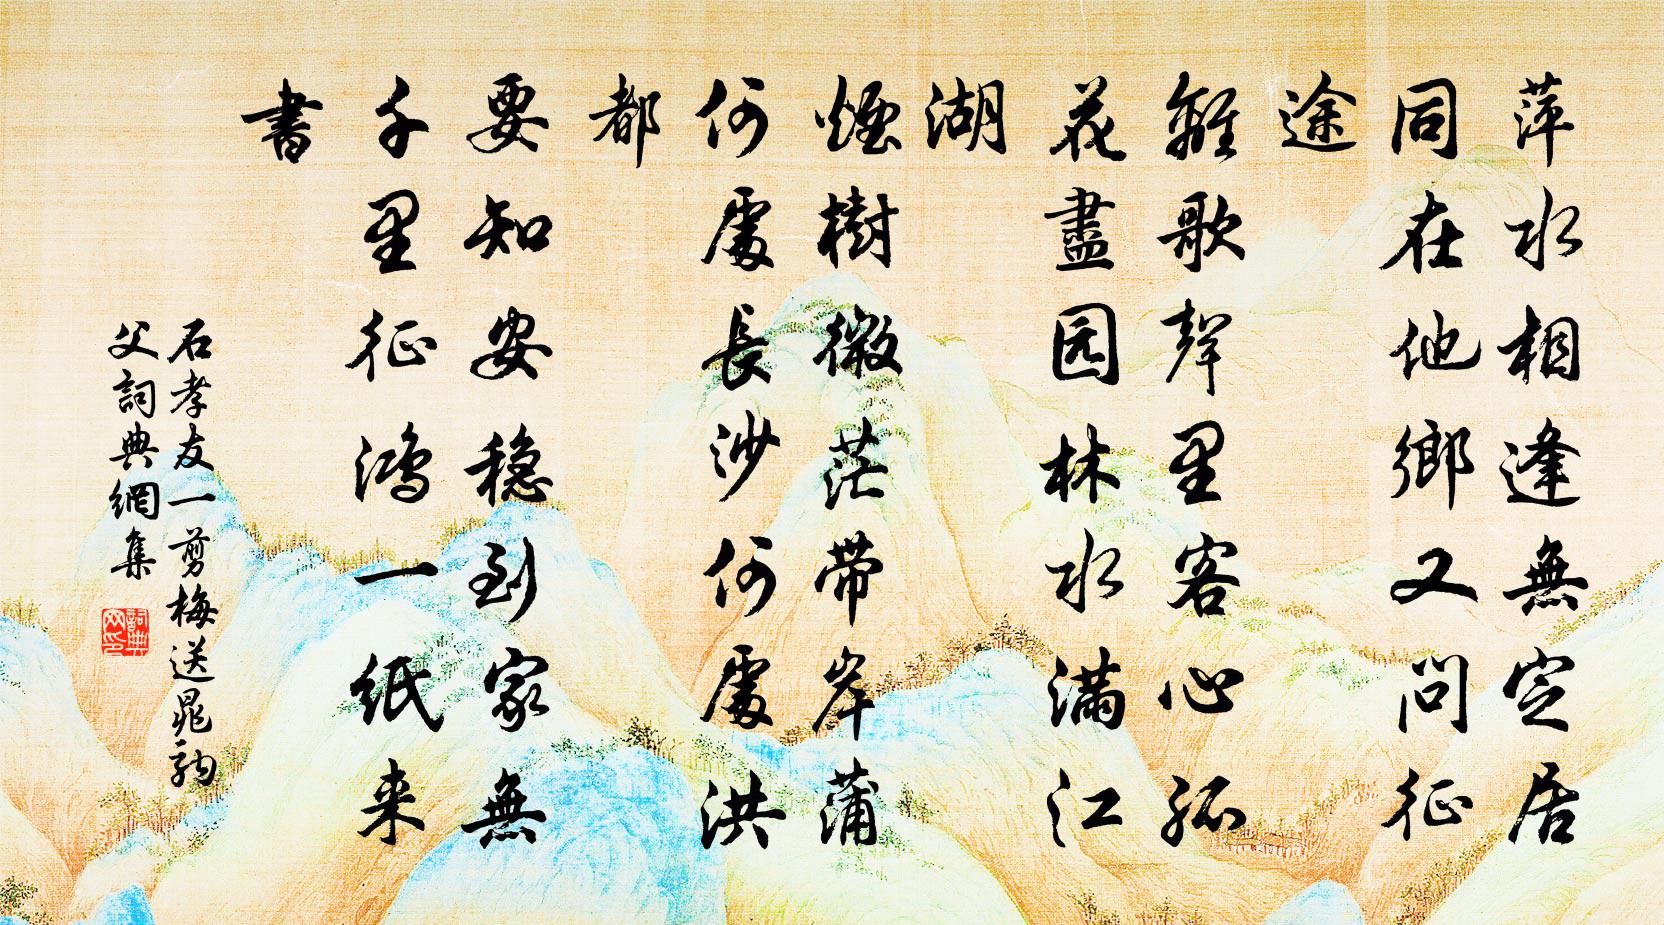 萍水相逢無定居
同在他鄉又問征
途
離歌聲里客心孤
花盡园林水满江
湖
煙樹微茫带岸蒲
何處長沙何處洪
都
要知安稳到家無
千里征鸿一紙来
書
石孝友一剪梅送晁駒
父詞典網集
詞典网印